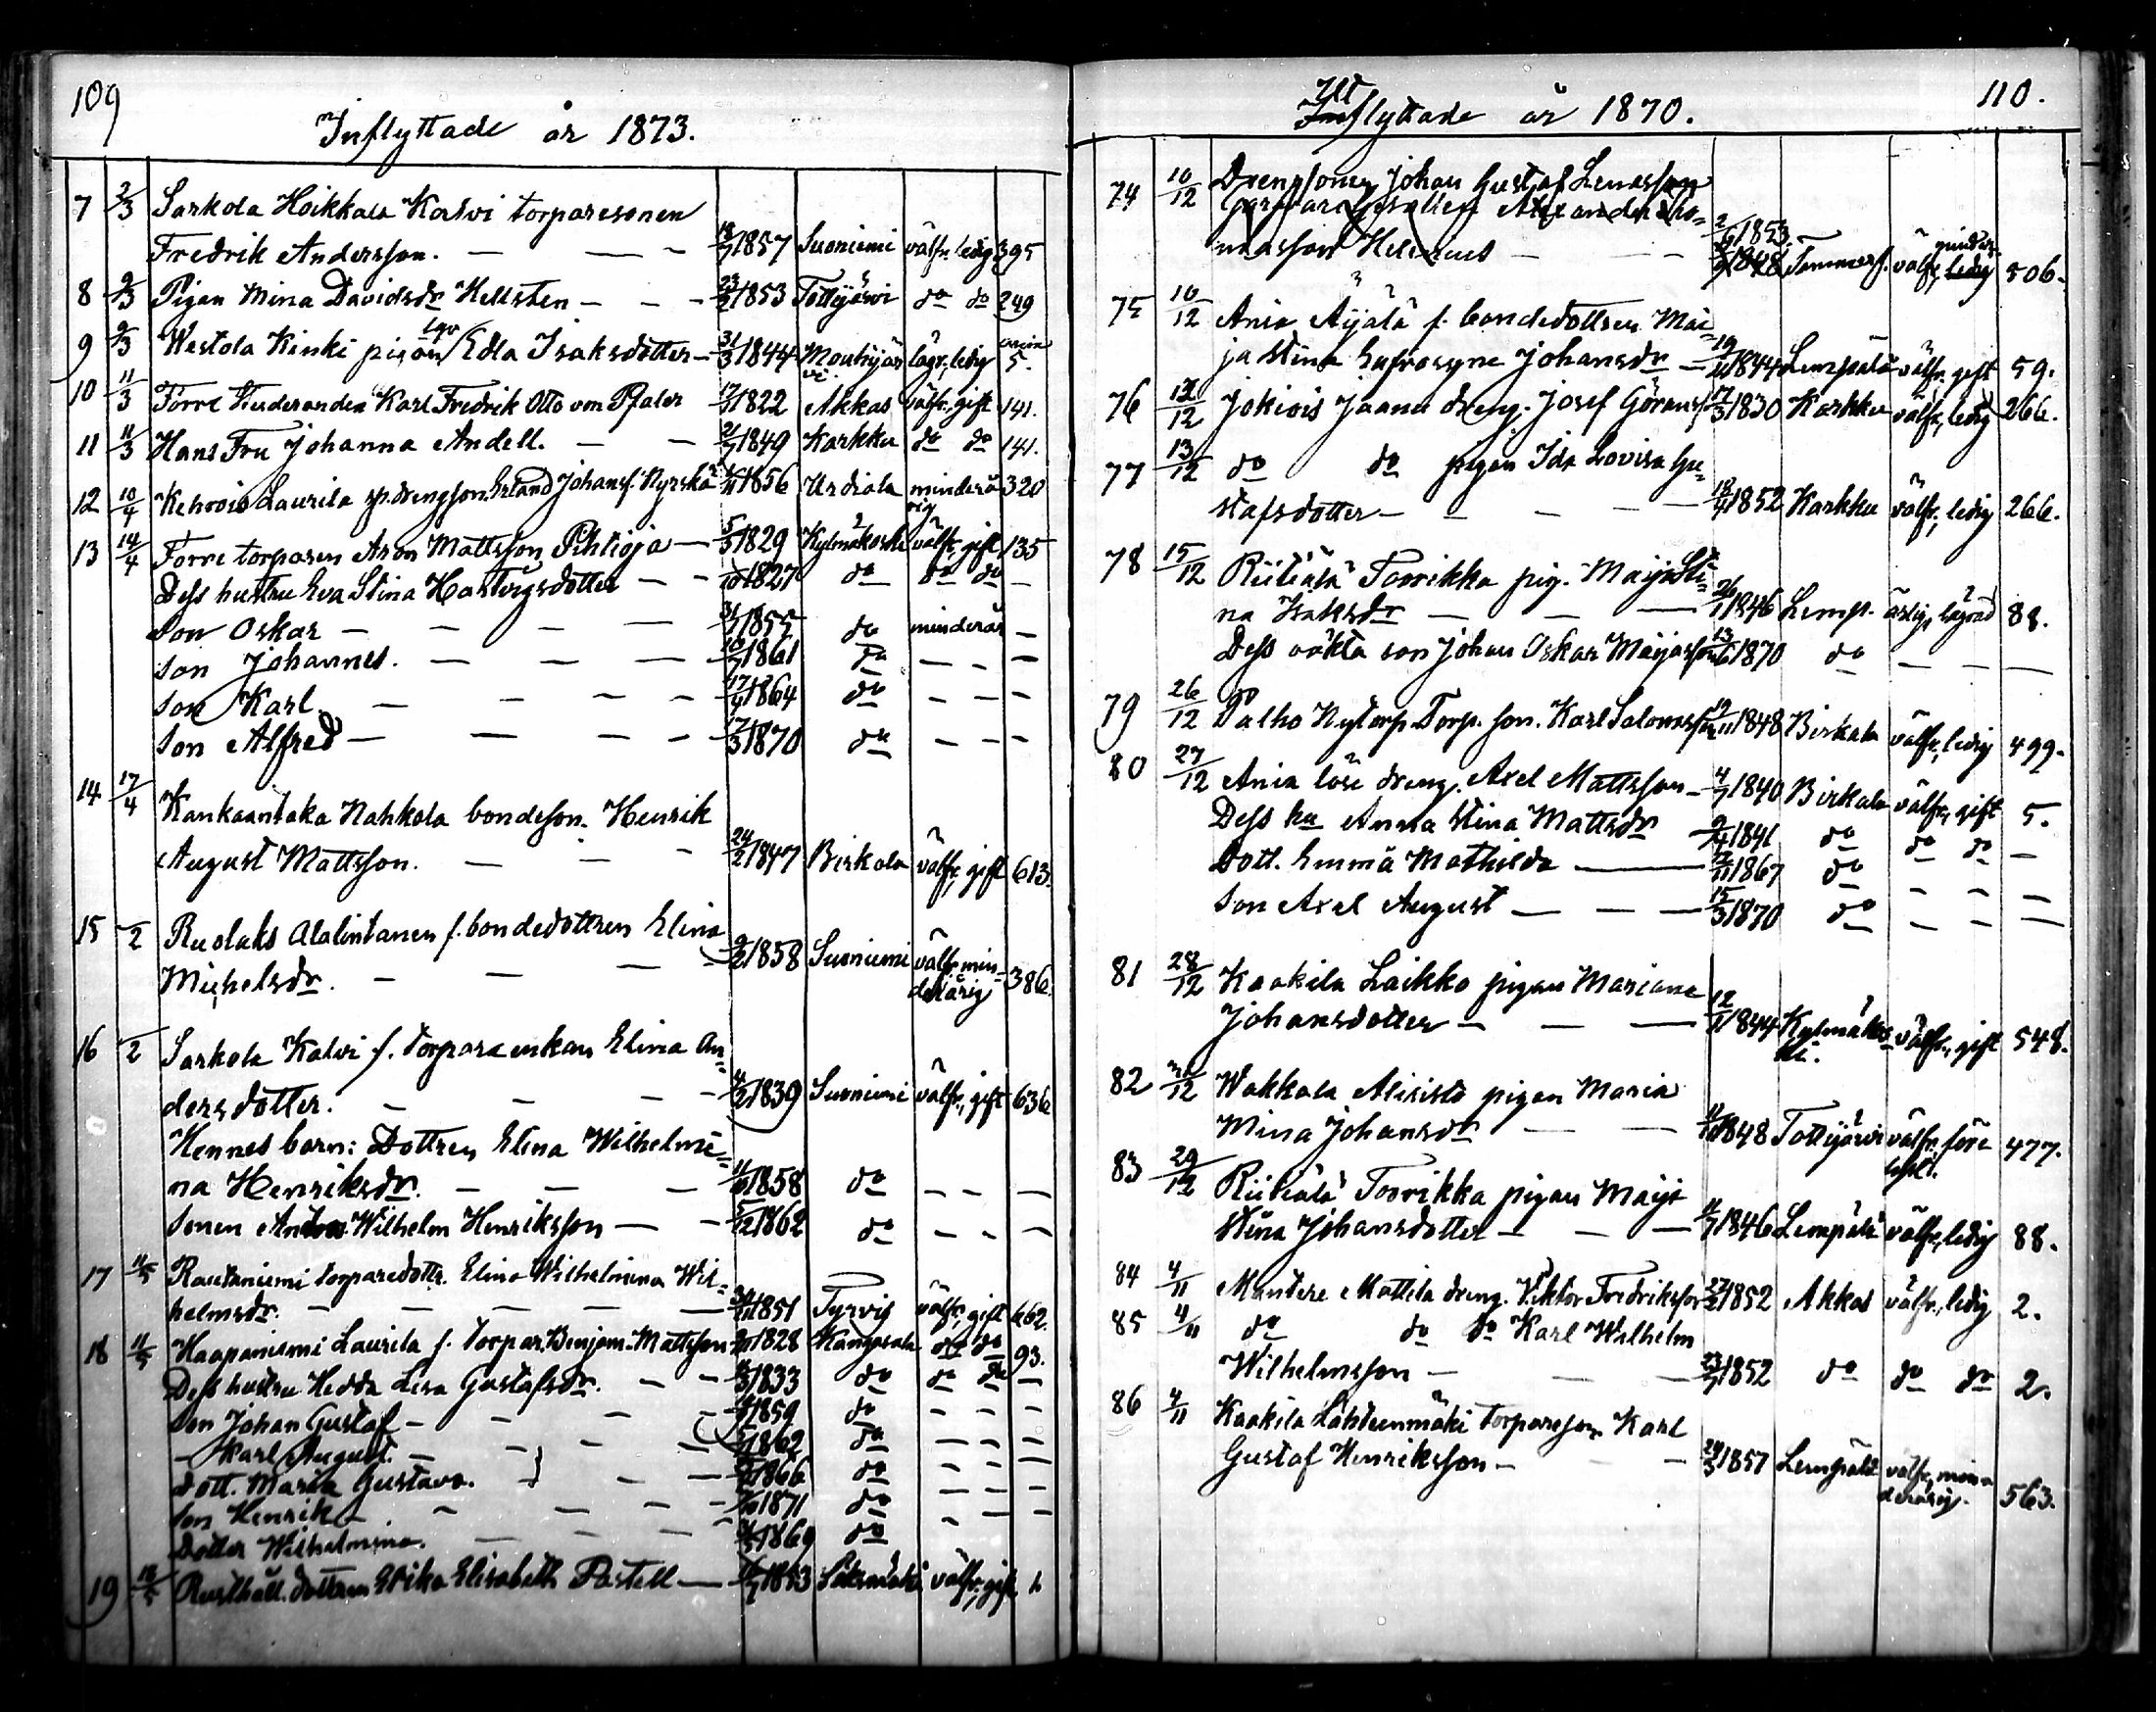 109
Inflyttade år 1873.
7 2/3 Sarkola Hoikkala Korvi torparesonen
Fredrik Andersson. — — — 18/7 1857 Suoniemi välfr. ledig 395
8 9/3 Pigan Mina Davidsdr Hellsten — — — 23/2 1853 Tottijärvi do do 249
9 9/3 Westola Kinki pigan Edla Isaksdotter — 31/3 1844 Mouhijär lägr. ledig 5.
vi.
10 11/3 Förre Studeranden Karl Fredrik Otto von Pfaler 17/3 1822 Akkas välfr. gift 141.
11 11/3 Hans Fru Johanna Andell. — — 21/7 1849 Karkku do do 141.
12 10/4 Kehrois Laurila sp. drengson Erland Johanss. Nyrskä 1856 Urdiala minderå 320
rig
13 14/4 Förre torparen Aron Mattsson Pihtioja — 5/3 1829 Kylmäkoski välfr., gift 135
Dess hustru Eva Stina Hartvigsdotter — — 1827 do do do —
Son Oskar — — — — 31/7 1855 do minderår —
son Johannes. — — — 1861 do — — —
son Karl. — — — — 17/9 1864 do — — —
son Alfred — — — — 17/3 1870 do — — —
14 17/4 Kankaantaka Nahkola bondeson. Henrik
August Mattsson. — — — 24/2 1847 Birkala välfr., gift 613.
15 —/2 Ruolaks Alalintanen f. bondedottren Elina
Michelsdr. — — — 9/2 1858 Suoniemi välfr. min- 386.
derårig
16 —/2 Sarkola Kalvi f. Torpareenkan Elina An-
dersdotter. — — — — 4/2 1839 Suoniemi välfr., gift 636
Hennes barn: Dottren Elina Wilhelmi-
na Henriksdr. — — — 11/10 1858 do — — —
Sonen Anton Wilhelm Henriksson — — 5/12 1862 do — — —
17 11/5 Rautaniemi torparedottr. Elina Wilhelmina Wil-
helmsdr. — — — — 1851 Tyrvis välfr., gift 662.
18 11/5 Haapaniemi Laurila f. Torpar. Benjam. Mattsson 1828 Kangasala do do 93.
Dess hustru Hedda Lisa Gustafsdr. — — 1833 do do do —
Son Johan Gustaf — — — — 1859 do — — —
— Karl August. — — — — 1862 do — — —
Dott. Maria Gustava. — — 1866 do — — —
Son Henrik — — — — 1871 do — — —
Dotter Wilhelmina. — — — 1869 do — — —
19 Rusthåll. dottren Erika Elisabeth Pastell — 1853 Sääksmäki välfr., gift
110.
Utflyttade år 1870.
74 10/12 Drengsonen Johan Gustaf Lenasson
Alexander Tho-
masson Helenius — — 2/6 1853.
1848 Tammerf. välfr. ledig 506.
minder-
75 10/12 Ania Äijälä f. bondedottren Mai-
ja Stina Eufrosyne Johansdr — 19/11 1844 Lempälä välfr. gift 59.
76 12/12 Jokiois Jaana dreng. Josef Görans. 17/3 1830 Karkku välfr., ledig 266.
77 13/12 do do pigan Ida Lovisa Gu-
stafsdotter — — — — 18/4 1852 Karkku välfr., ledig 266.
78 15/12 Riitiälä Toorikka pig. Maija Sti-
na Isaksdr — — — 26/1 1846 Lemp. ärlig, lägrad 88.
Dess oäkta son Johan Oskar Maijasson 13/6 1870 do — — —
79 26/12 Palho Nytorp Torp. son. Karl Salomsson 1848 Birkala välfr., ledig 499.
80 27/12 Ania löse dreng. Axel Mattsson — 4/7 1840 Birkala välfr., gift 5.
Dess hu Anna Stina Mattsdr — 1841 do do do —
Dott. Emma Mathilda — 1867 do — — —
Son Axel August — — — 15/3 1870 do — — —
81 28/12 Kaakila Laikko pigan Mariana
Johansdotter — — — 12/11 1844 Kylmäkos- välfr., gift 548.
ki.
82 Wakkala Alisisto pigan Maria
Mina Johansdr — — 1848 Tottijärvi välfr. före 477.
83 29/12 Riitiälä Toorikka pigan Maija
Stina Johansdotter — — — 1846 Lempälä välfr., ledig 88.
84 4/11 Mantere Mattila dreng. Viktor Fredriksson 27/2 1852 Akkas välfr., ledig 2.
85 4/11 do do do Karl Wilhelm
Wilhelmsson — — — 23/7 1852 do do do 2.
86 4/11 Kaakila Lähteenmäki torpareson Karl
Gustaf Henriksson — — 24/3 1857 Lempälä välfr., min- 563.
derårig.